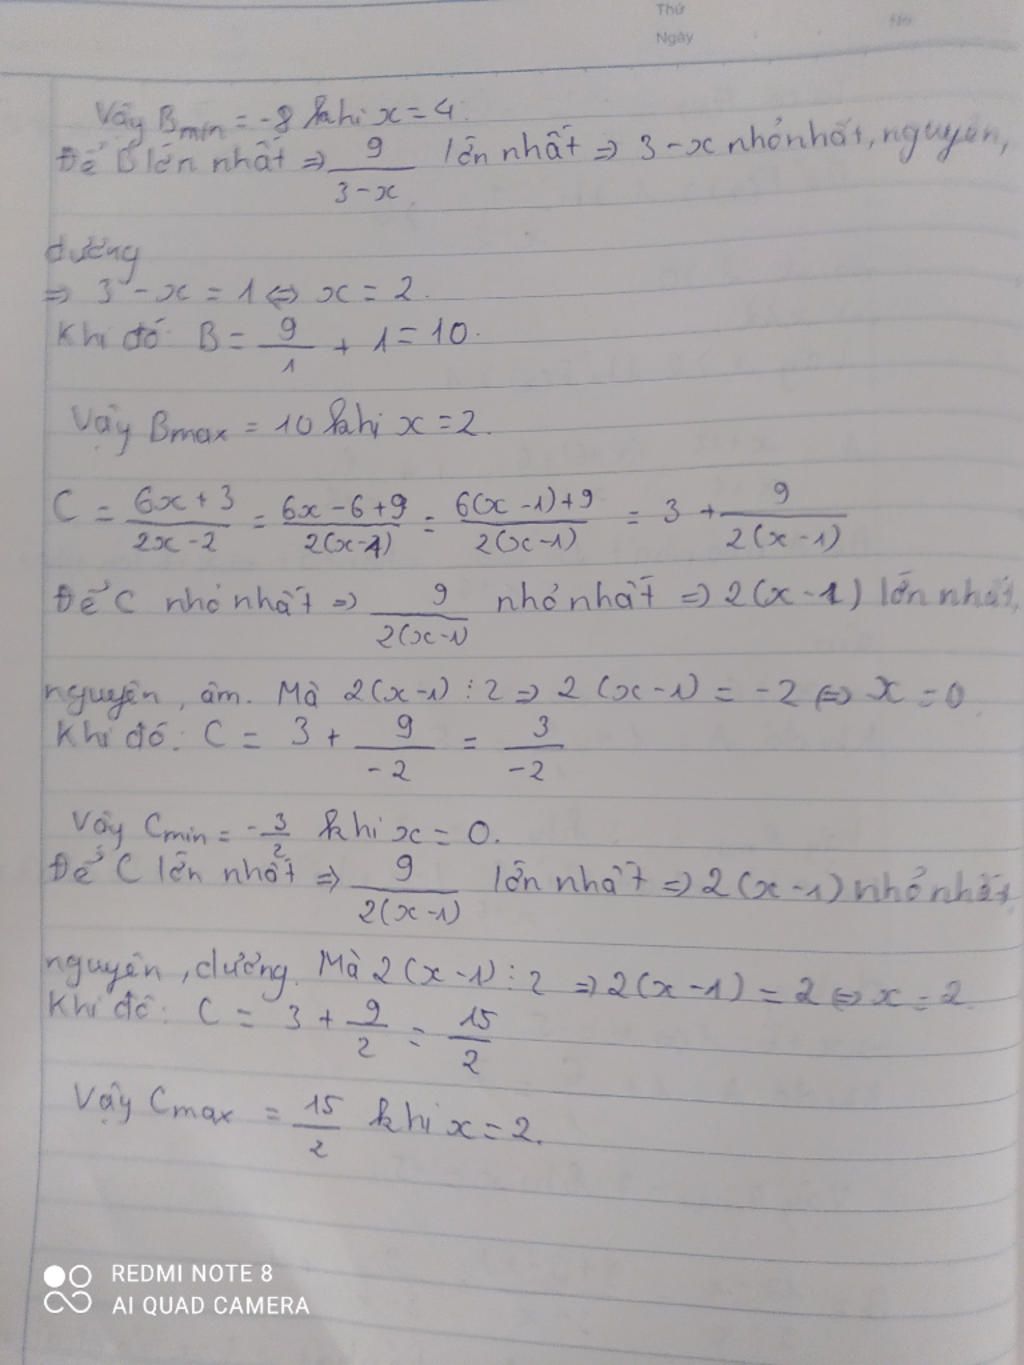 Thứ
Ngày
No
Vậy Bmin = -8 khi x = 4.
Để B lớn nhất ⇒ 9/(3-x) lớn nhất ⇒ 3-x nhỏ nhất, nguyên,
dương
⇒ 3-x = 1 ⇔ x = 2.
Khi đó: B = 9/1 + 1 = 10.
Vậy Bmax = 10 khi x = 2.
C = (6x+3)/(2x-2) = (6x-6+9)/(2(x-1)) = (6(x-1)+9)/(2(x-1)) = 3 + 9/(2(x-1))
Để C nhỏ nhất ⇒ 9/(2(x-1)) nhỏ nhất ⇒ 2(x-1) lớn nhất,
nguyên, âm. Mà 2(x-1) ⋮ 2 ⇒ 2(x-1) = -2 ⇔ x = 0.
Khi đó: C = 3 + 9/-2 = 3/-2
Vậy Cmin = -3/2 khi x = 0.
Để C lớn nhất ⇒ 9/(2(x-1)) lớn nhất ⇒ 2(x-1) nhỏ nhất,
nguyên, dương. Mà 2(x-1) ⋮ 2 ⇒ 2(x-1) = 2 ⇔ x = 2.
Khi đó: C = 3 + 9/2 = 15/2
Vậy Cmax = 15/2 khi x = 2.
REDMI NOTE 8
AI QUAD CAMERA